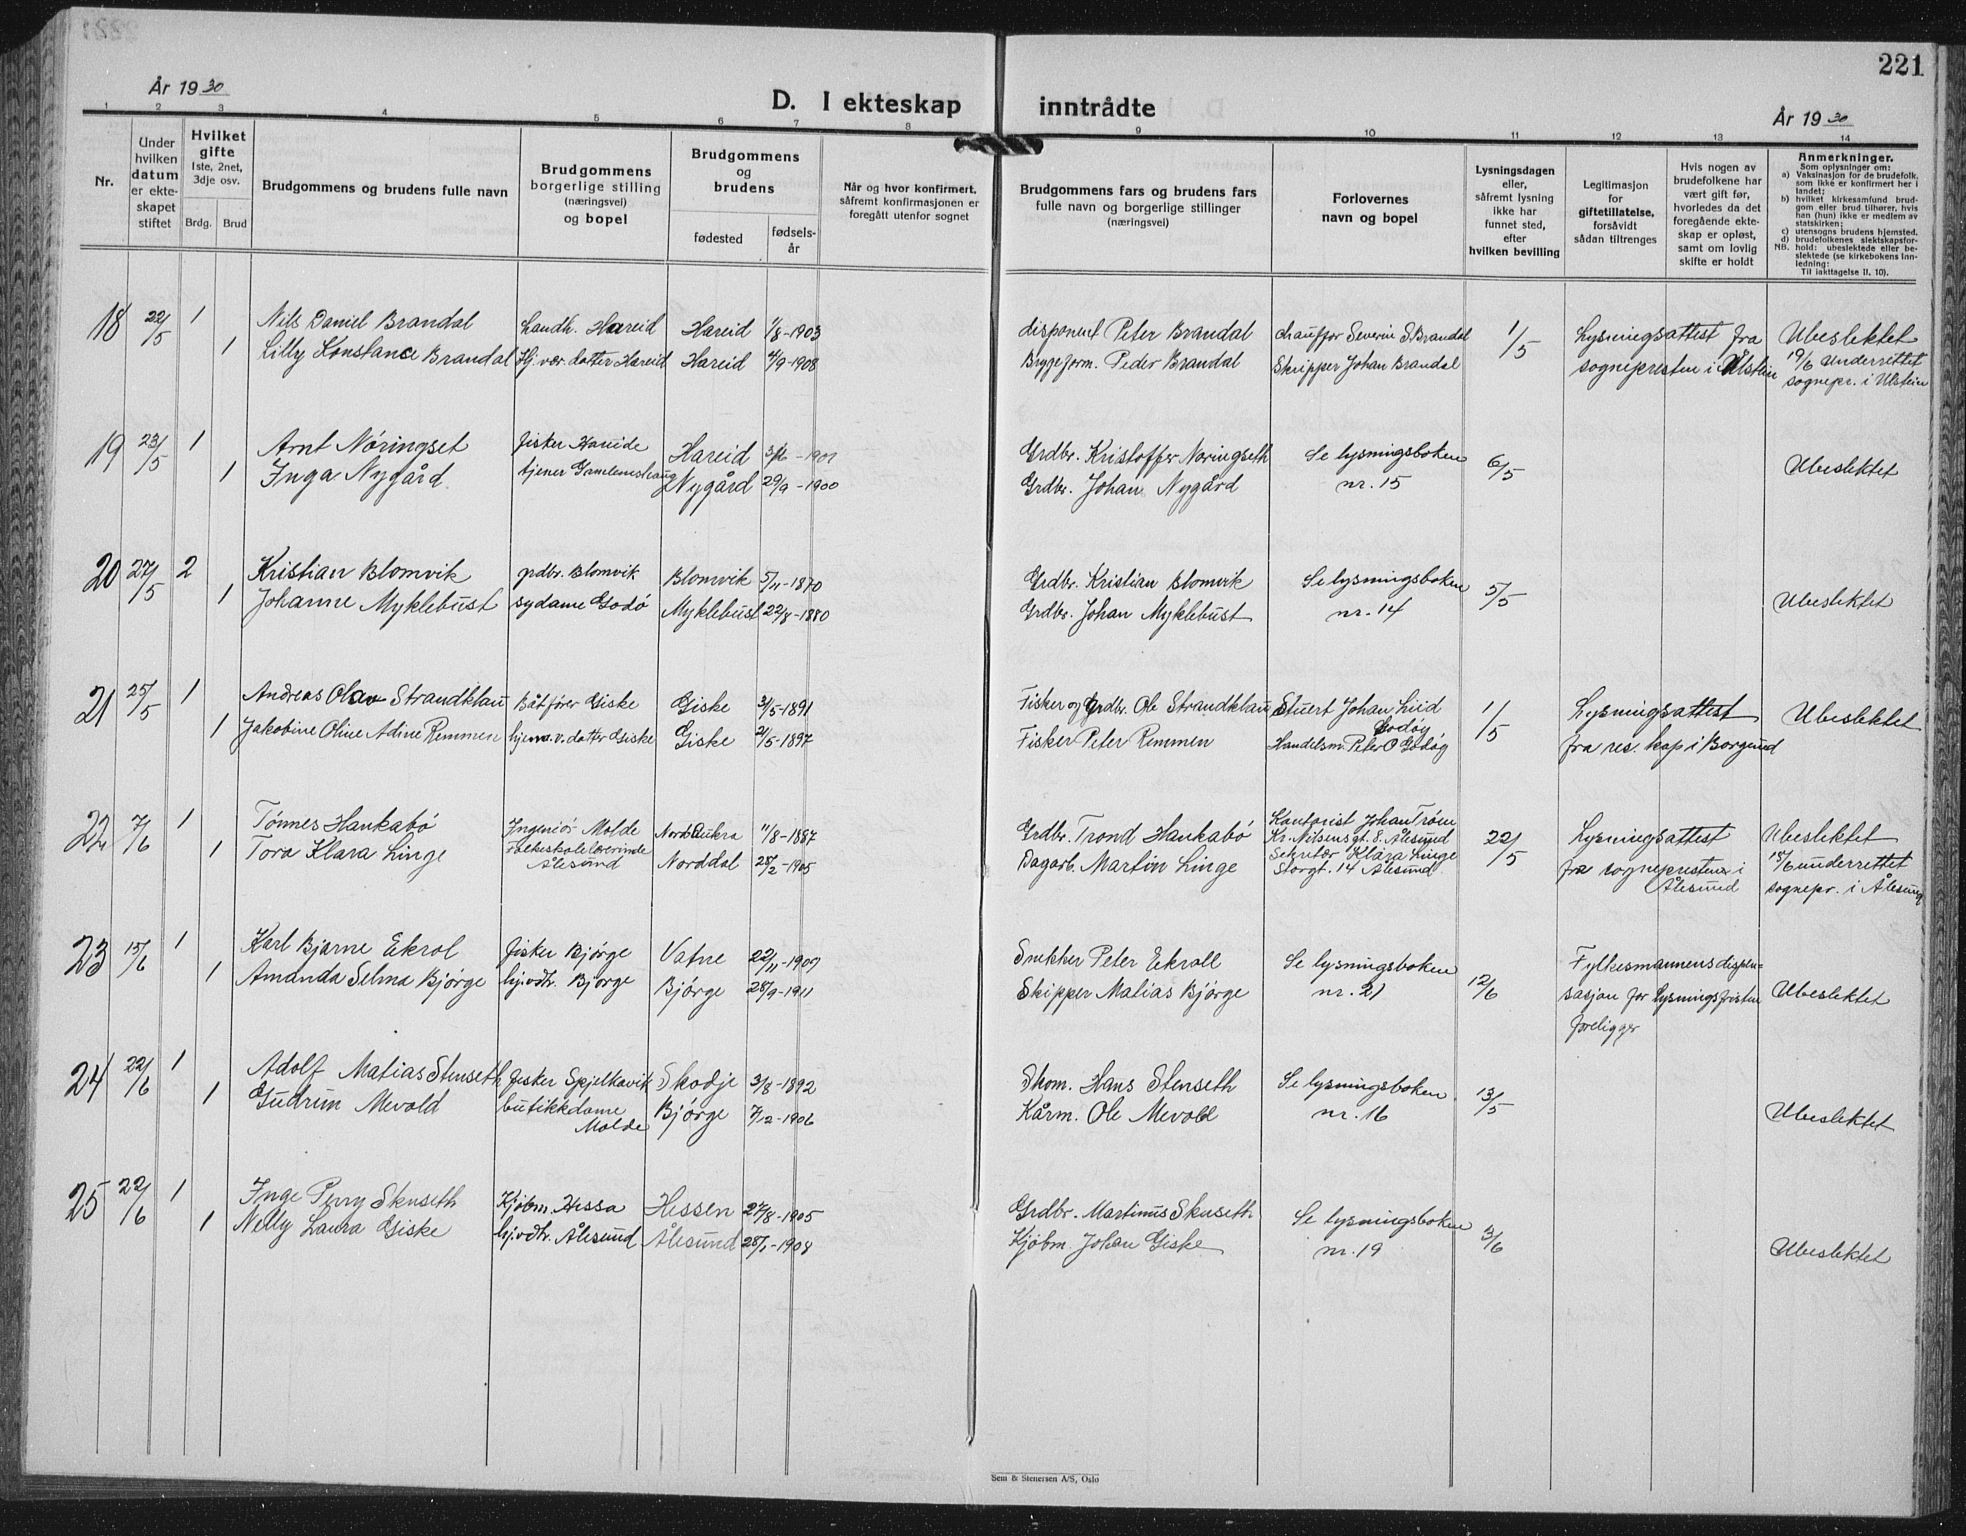 221
År 1930
D. I ekteskap inntrådte
År 1930
1 2 3 4 5 6 7 8 9 10 11 12 13 14
Nr.
Under hvilken datum er ekteskapet stiftet
Hvilket gifte
1ste, 2net, 3dje osv.
Brdg. Brud
Brudgommens og brudens fulle navn
Brudgommens borgerlige stilling (næringsvei) og bopel
Brudgommens og brudens
fødested
fødselsår
Når og hvor konfirmert, såfremt konfirmasjonen er foregått utenfor sognet
Brudgommens fars og brudens fars fulle navn og borgerlige stillinger (næringsvei)
Forlovernes navn og bopel
Lysningsdagen eller, såfremt lysning ikke har funnet sted, efter hvilken bevilling
Legitimasjon for giftetillatelse, forsåvidt sådan tiltrenges
Hvis nogen av brudefolkene har vært gift før, hvorledes da det foregående ekteskap er opløst, samt om lovlig skifte er holdt
Anmerkninger.
Som oplysninger om:
a) Vaksinasjon for de brudefolk, som ikke er konfirmert her i landet;
b) hvilket kirkesamfund brudgom eller brud tilhører, hvis han (hun) ikke er medlem av statskirken;
c) utensogns brudens hjemsted.
d) brudefolkenes slektskapsforhold: ubeslektede eller beslektede (se kirkebokens Innledning:
NB.
Til iakttagelse II. 10).
18 22/5 1 Nils Daniel Brandal Landh. Hareid Hareid 1/8-1903 disponent Peter Brandal chauffør Severin S Brandal 1/5 Lysningsattest fra Ubeslektet
1 Lilly Konstance Brandal Hj. vær. datter Hareid Hareid 4/9-1908 Bryggeform. Peder Brandal Skripper Johan Brandal sognepresten i Ulstein 19/6 underrettet
sognepr. i Ulstein
19 23/5 1 Arnt Nøringset fisker Hareide Hareid Grdbr. Kristoffer Nøringseth Se lysningsboken 6/5 Ubeslektet
1 Inga Nygård tjener Gamlemshaug Nygård 29/9-1900 Grdbr. Johan Nygård nr. 15
20 27/5 2 Kristian Blomvik grdbr. Blomvik Blomvik 5/11-1870 Grdbr. Kristian Blomvik Se lysningsboken 5/5 Ubeslektet
1 Johanne Myklebust sydame Godø Myklebust 22/8-1880 Grdbr. Johan Myklebust nr. 14
21 25/5 1 Andreas Olav Strandklau Båtfører Giske Giske 3/5-1891 Fisker og Grdbr. Ole Strandklau Stuert Johan Liid 1/5 Lysningsattest Ubeslektet
Godøy
1 Jakobine Oline Adine Remmen hjemv. datter Giske Giske 21/5-1897 Fisker Peter Remmen Handelsm. Peter O Godøy fra res. kap i Borgund
22 7/6 1 Tønnes Haukabø Ingeniør Molde Nord Aukra 11/8-1887 Grdbr. Trond Haukabø Kantorist Johan Trøen 22/5 Lysningsattest Ubeslektet
Kr. Nilsens gt. 8. Ålesund
1 Tora Klara Linge Folkeskolelærerinde Norddal 28/2-1905 Dagarb. Martin Linge Sekretær Klara Linge fra sognepresten i 15/6 underrettet
Ålesund Storgt. 14 Ålesund Ålesund sognepr. i Ålesund
23 15/6 1 Karl Bjarne Ekrol fisker Bjørge Vatne 22/11-1909 Snekker Peter Ekroll Se lysningsboken 12/6 Fylkesmannens dispen= Ubeslektet
1 Amanda Selma Bjørge hj.vdtr. Bjørge Bjørge 28/9-1911 Skipper Matias Bjørge nr. 21 sasjon for lysningsfristen
foreligger
24 22/6 1 Adolf Matias Stenseth fisker Spjelkavik Skodje 3/8-1892 Skom. Hans Stenseth Se lysningsboken 13/5
1 Gudrun Mevold butikkdame Bjørge 7/12-1906 Kårm. Ole Mevold nr. 16 Ubeslektet
Molde
25 22/6 1 Inge Perry Skuseth Kjøbm. Hessa Hessen 27/8-1905 Grdbr. Martinus Skuseth Se lysningsboken 3/6
1 Nelly Laura Giske hj.vdtr. Ålesund Ålesund 28/1-1908 Kjøbm. Johan Giske nr. 19 Ubeslektet
Sem & Stenersen A/S, Oslo